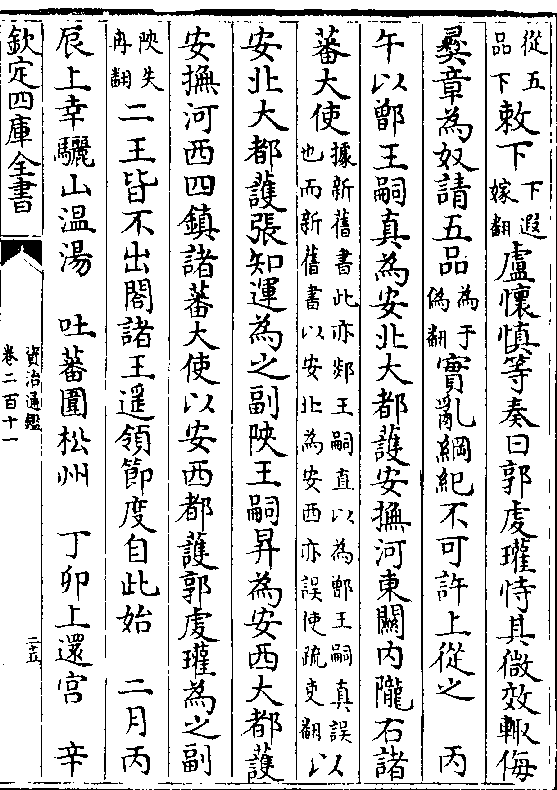 從五品下敕下下遐嫁翻盧懷慎等奏曰郭䖍瓘恃其微效輙侮
彛章為奴請五品為于偽翻實亂綱紀不可許上從之　丙
午以鄫王嗣真為安北大都護安撫河東關内隴右諸
蕃大使據新舊書此亦郯王嗣直以為鄫王嗣真誤也而新舊書以安北為安西亦誤使疏吏翻以
安北大都護張知運為之副陜王嗣昇為安西大都護
安撫河西四鎮諸蕃大使以安西都護郭䖍瓘為之副
陜失冉翻二王皆不出閤諸王遥領節度自此始　二月丙
辰上幸驪山温湯　吐蕃圍松州　丁卯上還宫　辛
欽定四庫全書
資治通鑑
卷二百十一
二五